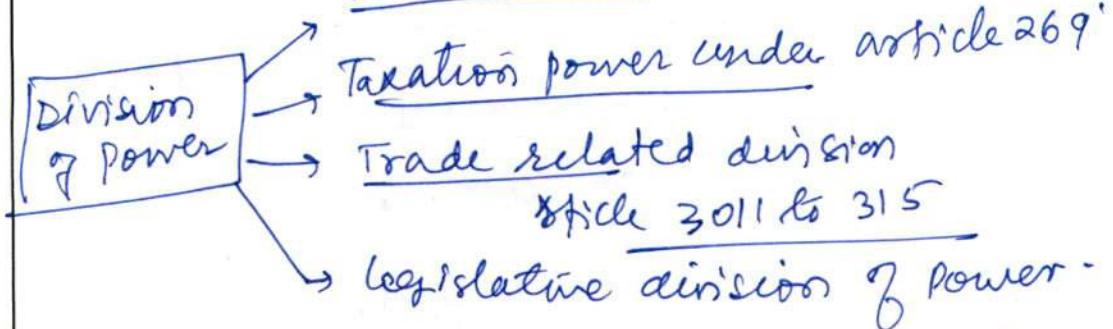 Division
of Power
Taxation power under article 269
Trade related division
article 3011 to 315
legislative division of Power.